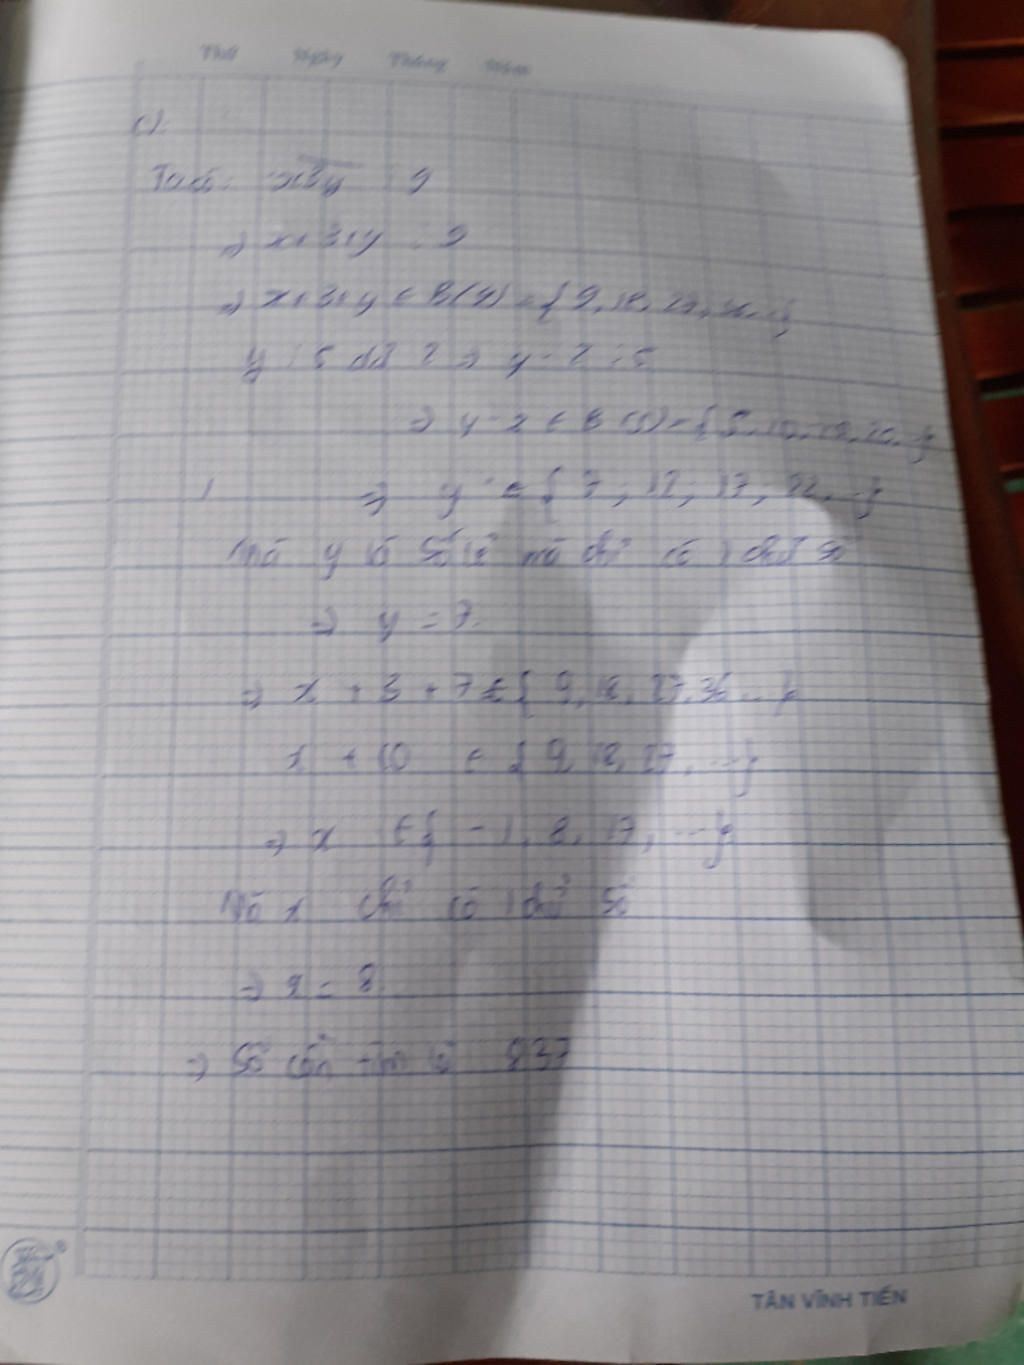 Thứ Ngày Tháng Năm
c).
Ta có: x3y ⋮ 9
=> x+3+y ⋮ 9
=> x+3+y ∈ B(9) = { 9, 18, 27, 36...}
y : 5 dư 2 => y - 2 ⋮ 5
=> y - 2 ∈ B(5) = { 5, 10, 15, 20...}
=> y ∈ { 7; 12; 17; 22,...}
Mà y là số lẻ mà chỉ có 1 chữ số
=> y = 7.
=> x + 3 + 7 ∈ { 9, 18, 27, 36...}
x + 10 ∈ { 9, 18, 27, ...}
=> x ∈ { -1, 8, 17, ...}
Mà x chỉ có 1 chữ số
=> x = 8.
=> Số cần tìm là 837
TÂN VĨNH TIẾN